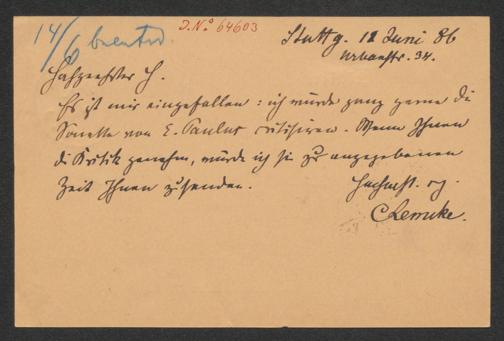 14/6 beantw.
J.No 64603
Stuttg. 12 Juni 86
Urbanstr. 34.
Hochgeehrter H.
Es ist mir eingefallen: ich würde ganz gerne die
Sonette von E. Paulus kritisiren. Wenn Ihnen
die Kritik genehm, würde ich sie zu angegebenen
Zeit Ihnen zusenden.
Hochacht.
CLemcke.